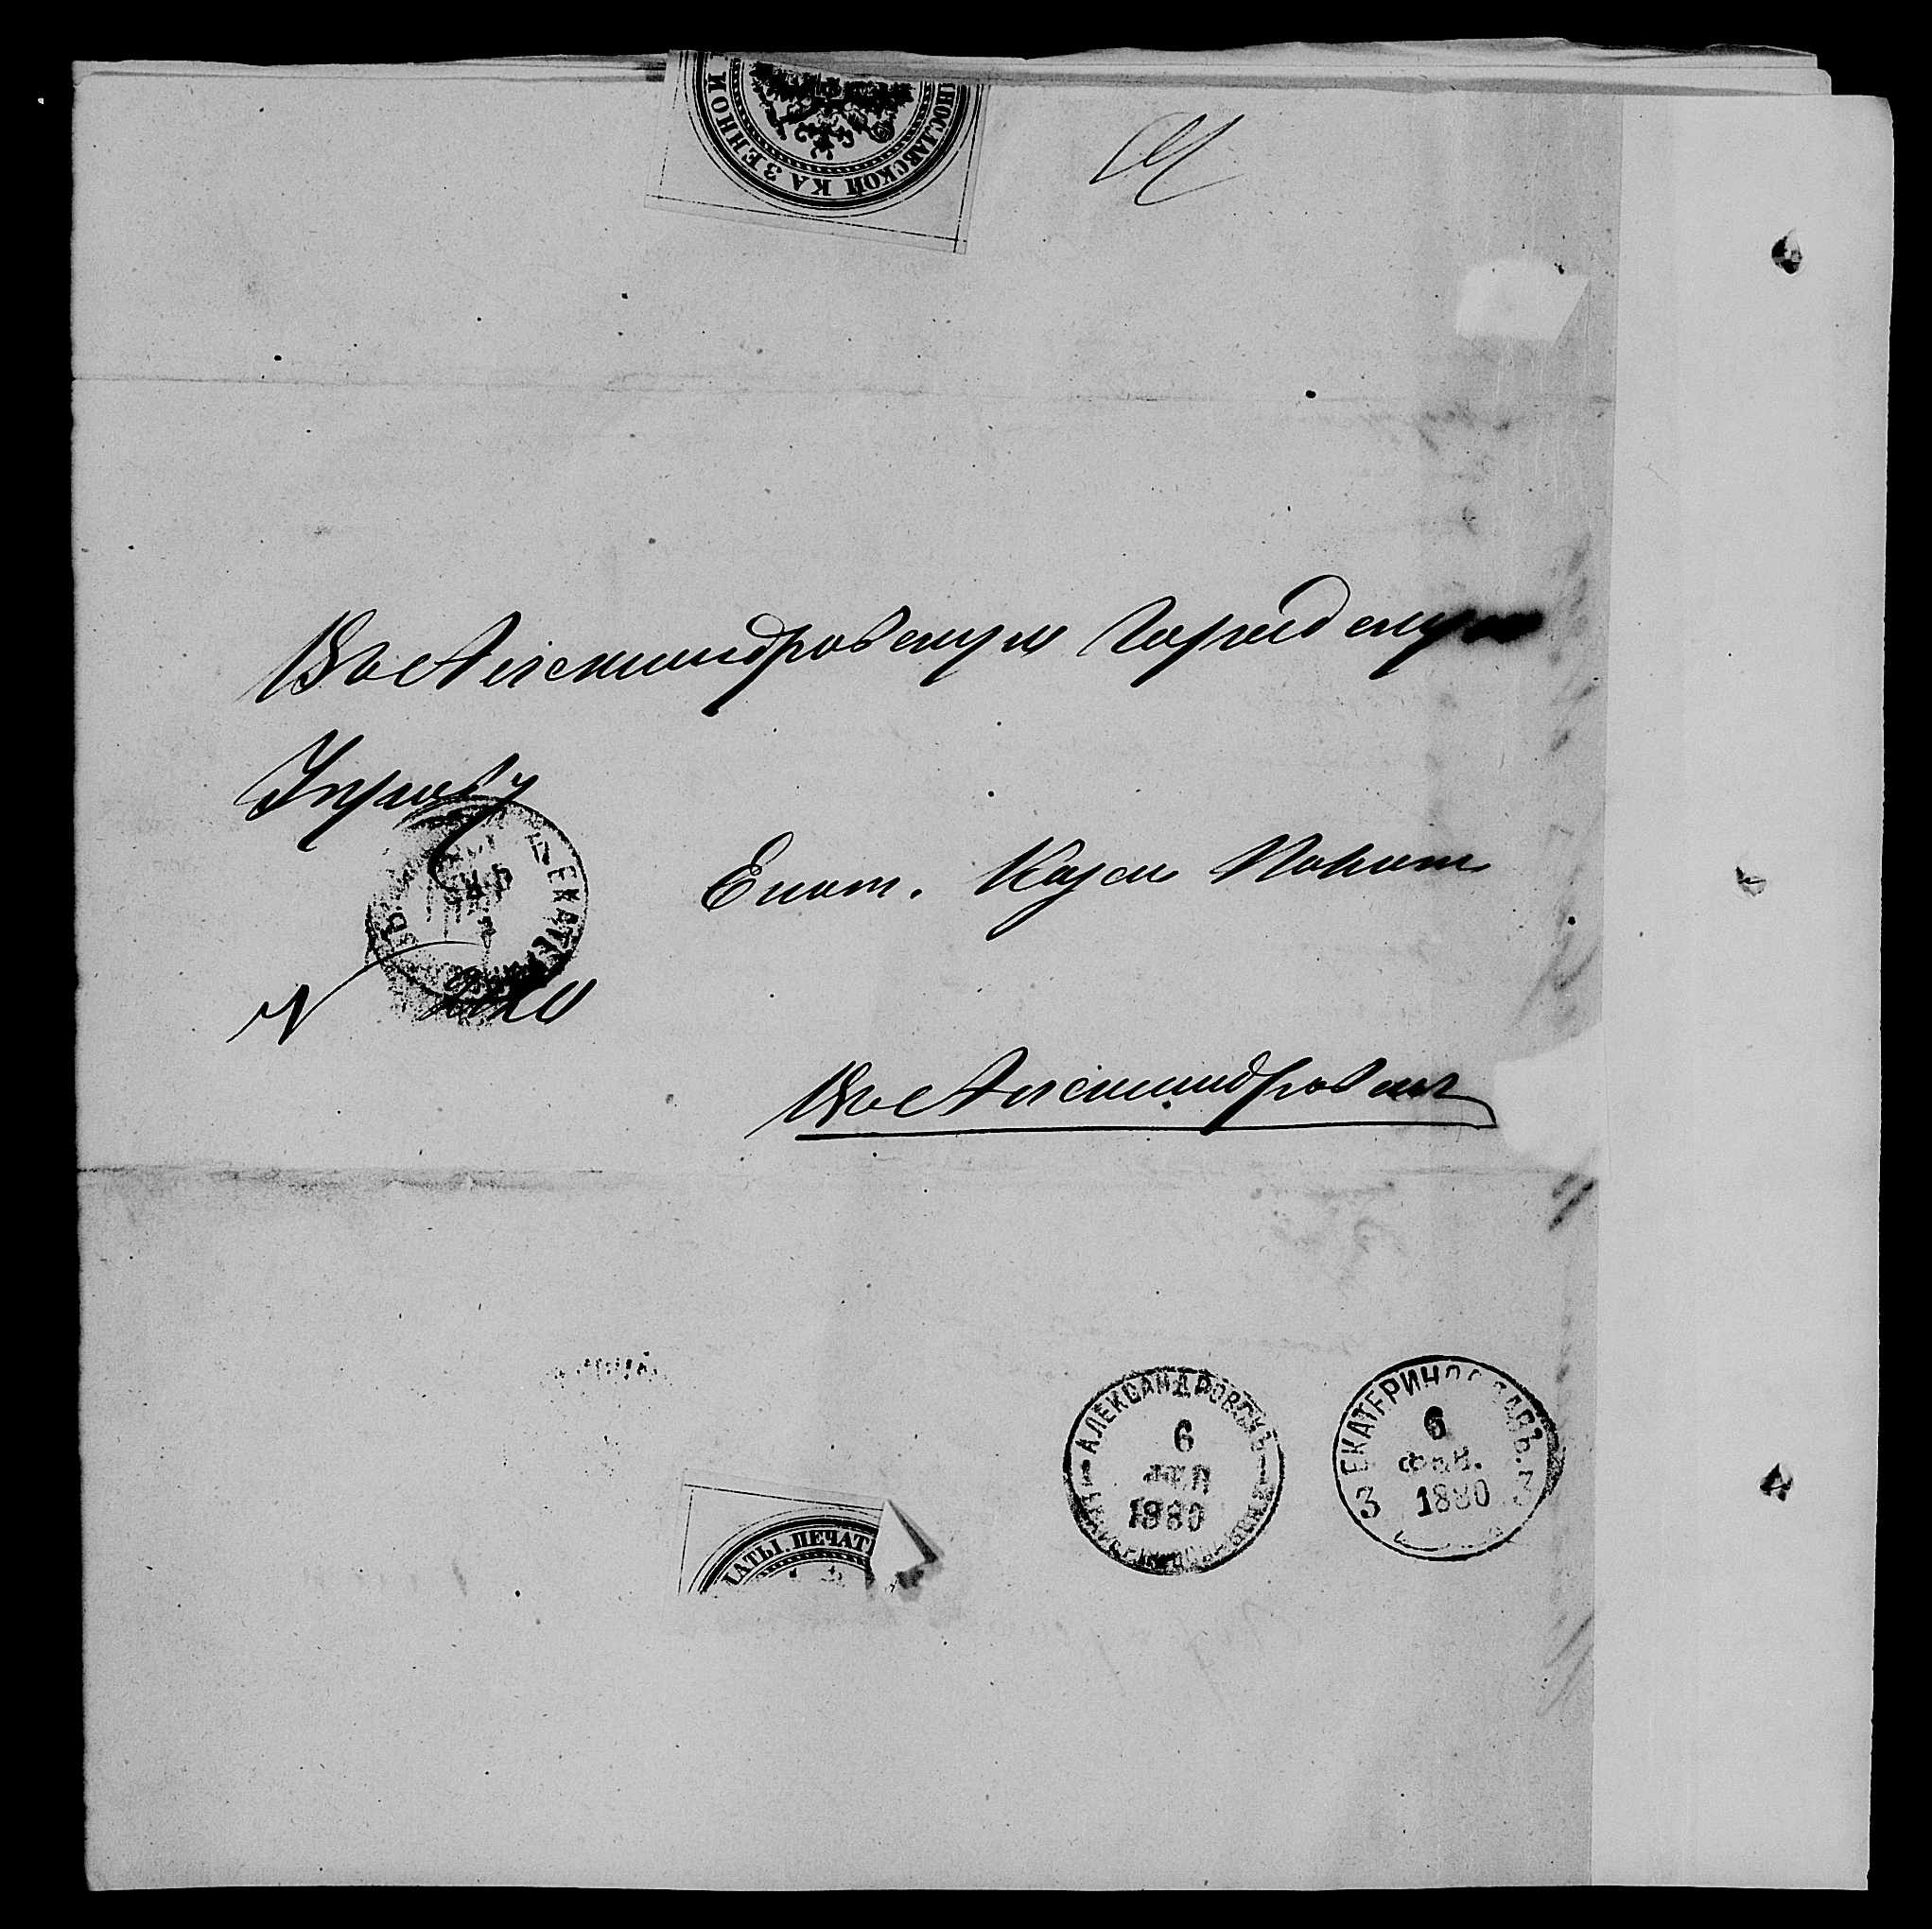 НОСЛАВСКОЙ КАЗЕННОЙ
Въ Александровскую Городскую
Управу
Екат. Казен Палат
N
Въ Александровскъ
ЕКАТЕ
АЛЕКСАНДРОВСКЪ
6
ФЕВ
1880
ЕКАТЕРИНОСЛАВЪ.
6
ФЕВ.
1880
3 3
ЛАТЫ. ПЕЧАТ